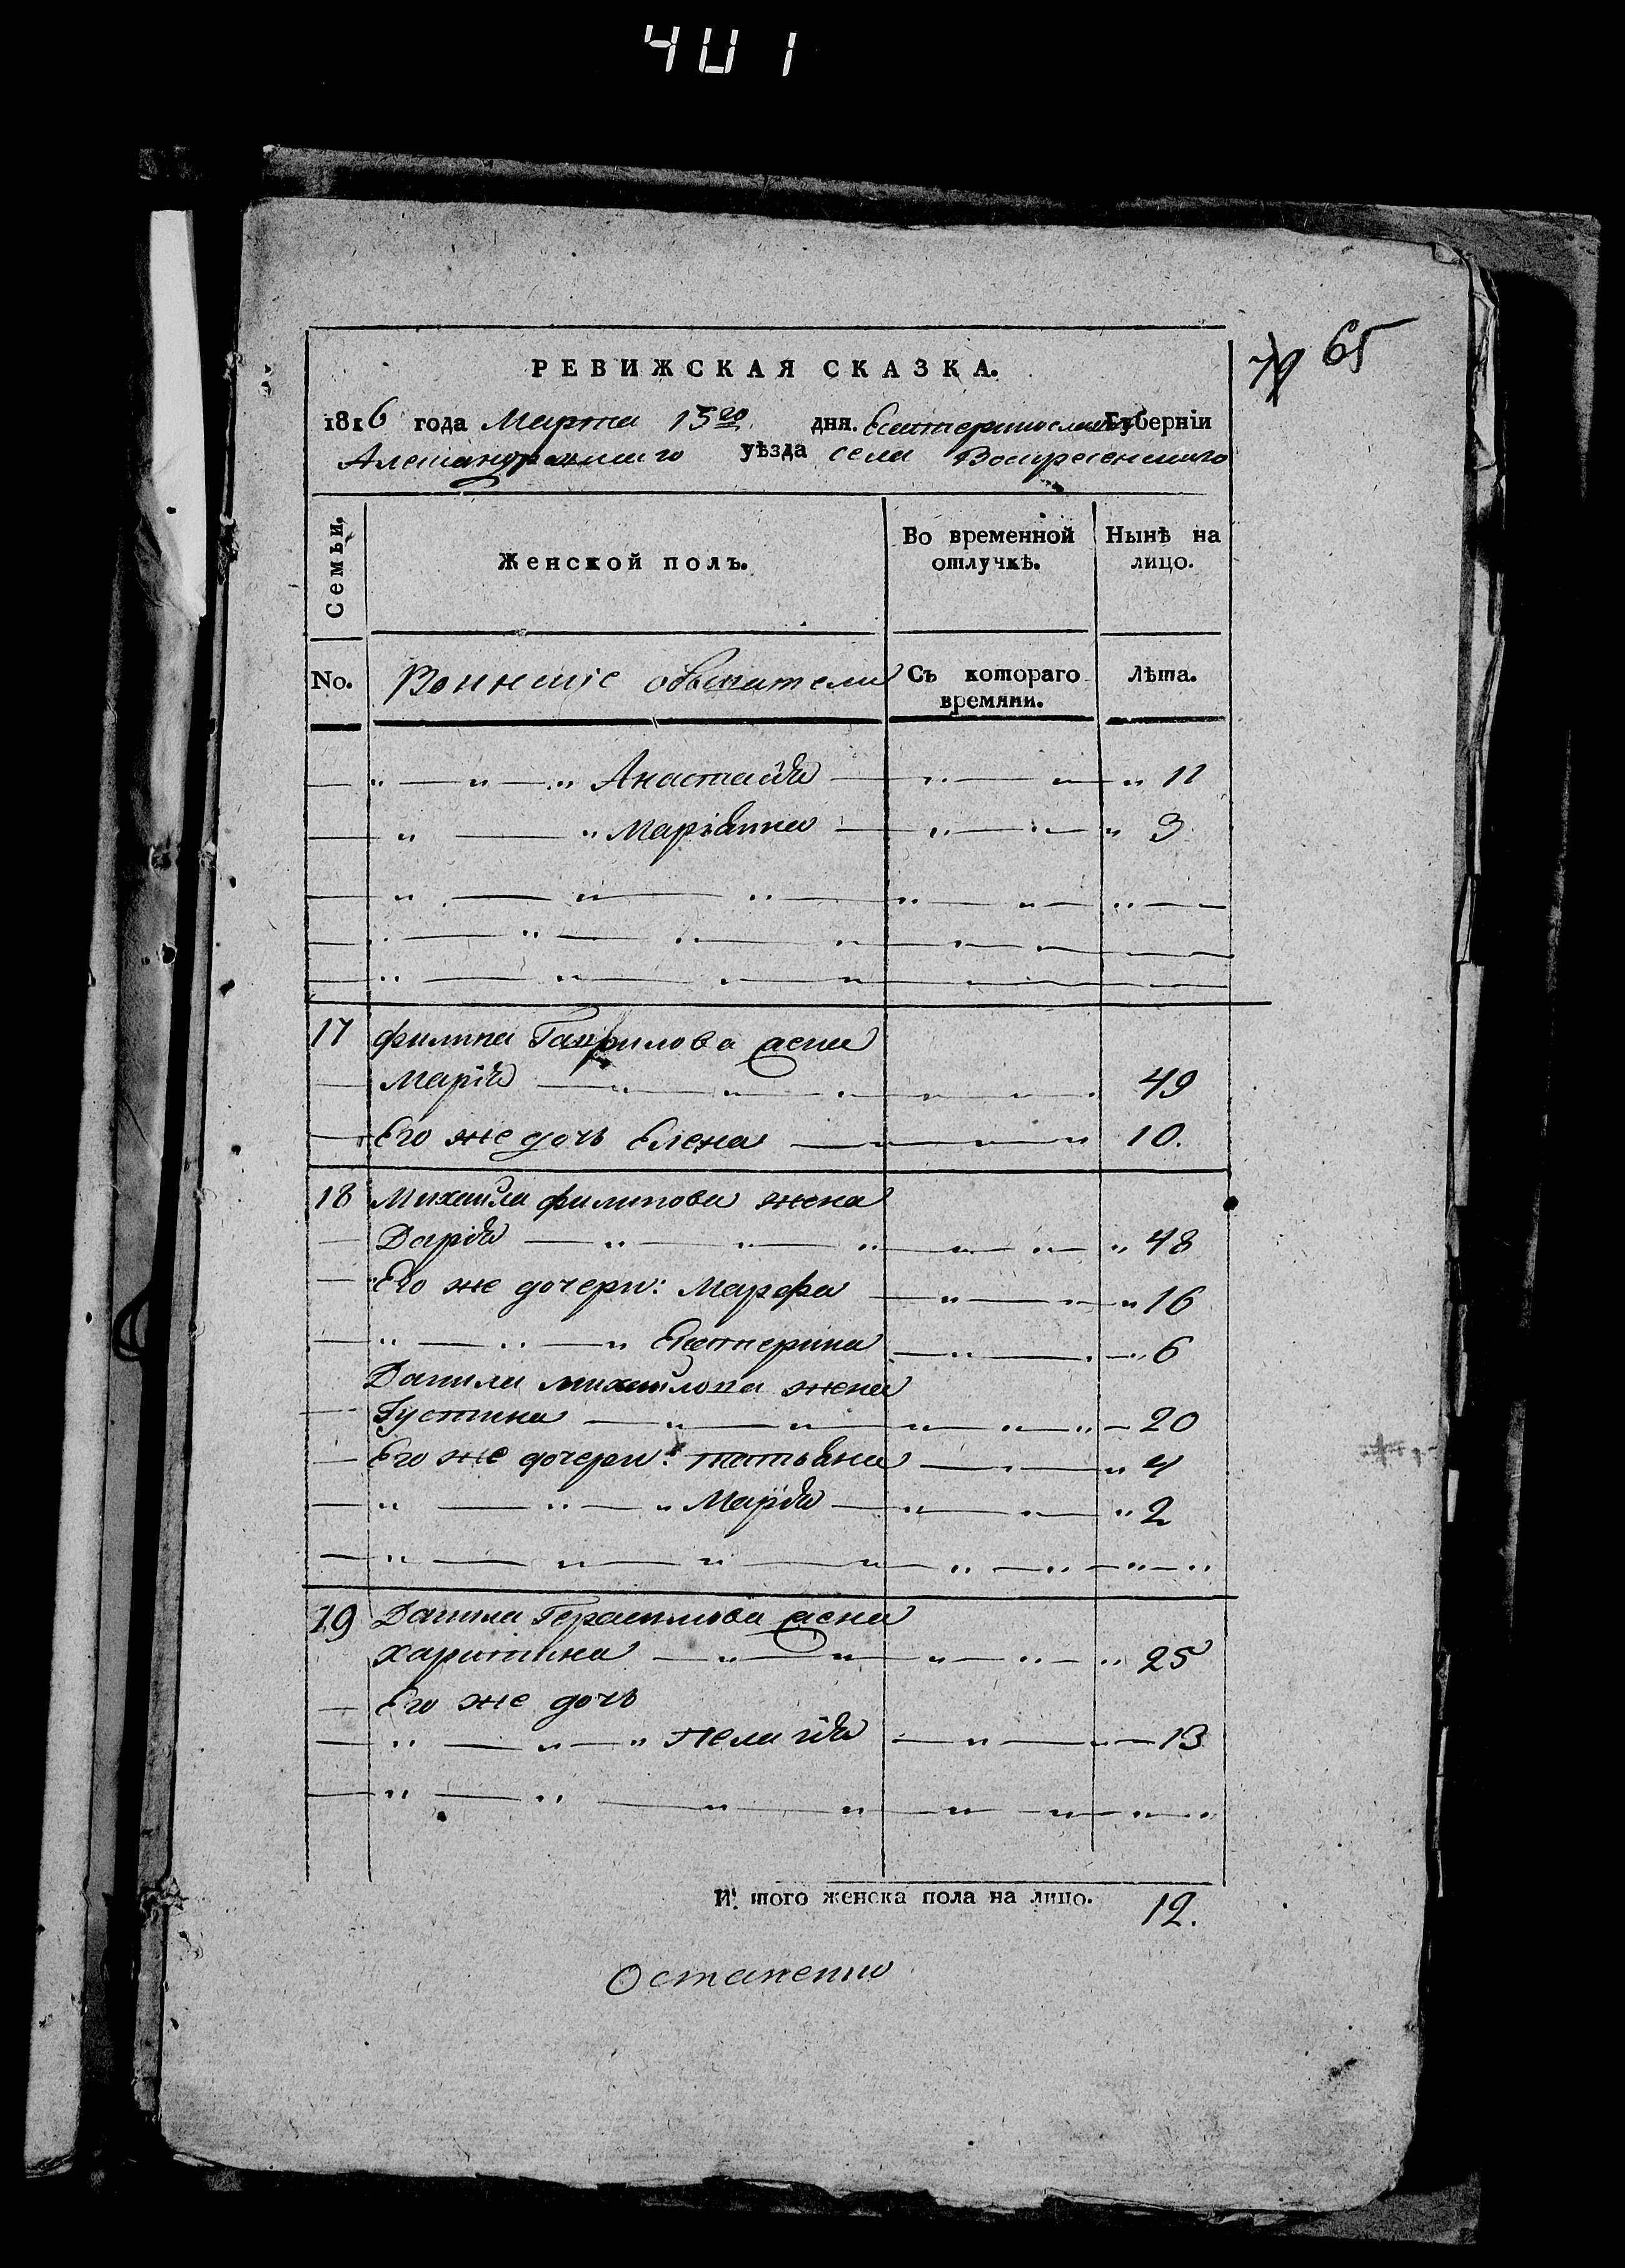 401
79 65
РЕВИЖСКАЯ СКАЗКА.
1816 года Марта 15го дня. Екатеринослав Губернiи
Александровскаго уѣзда села Воскресенскаго
Семьи. Женской полъ. Во временной отлучкѣ. Нынѣ на лицо.
No. обыватели Съ котораго времяни. Лѣта.
Анастасiя 11
Марiанна 3
17 Филипа Гаврилова жена
Марiя 49
Его же дочь Елена 10.
18 Михайла Филипова жена
Дарiя 48
Его же дочери: Марфа 16
Екатерина 6
Данила Михайлова жена
Густина 20
Его же дочери: татьяна 4
Марiя 2
19 Данила Герасимова жена
Харитина 25
Его же дочь
Пелагiя 13
И того женска пола на лицо. 12.